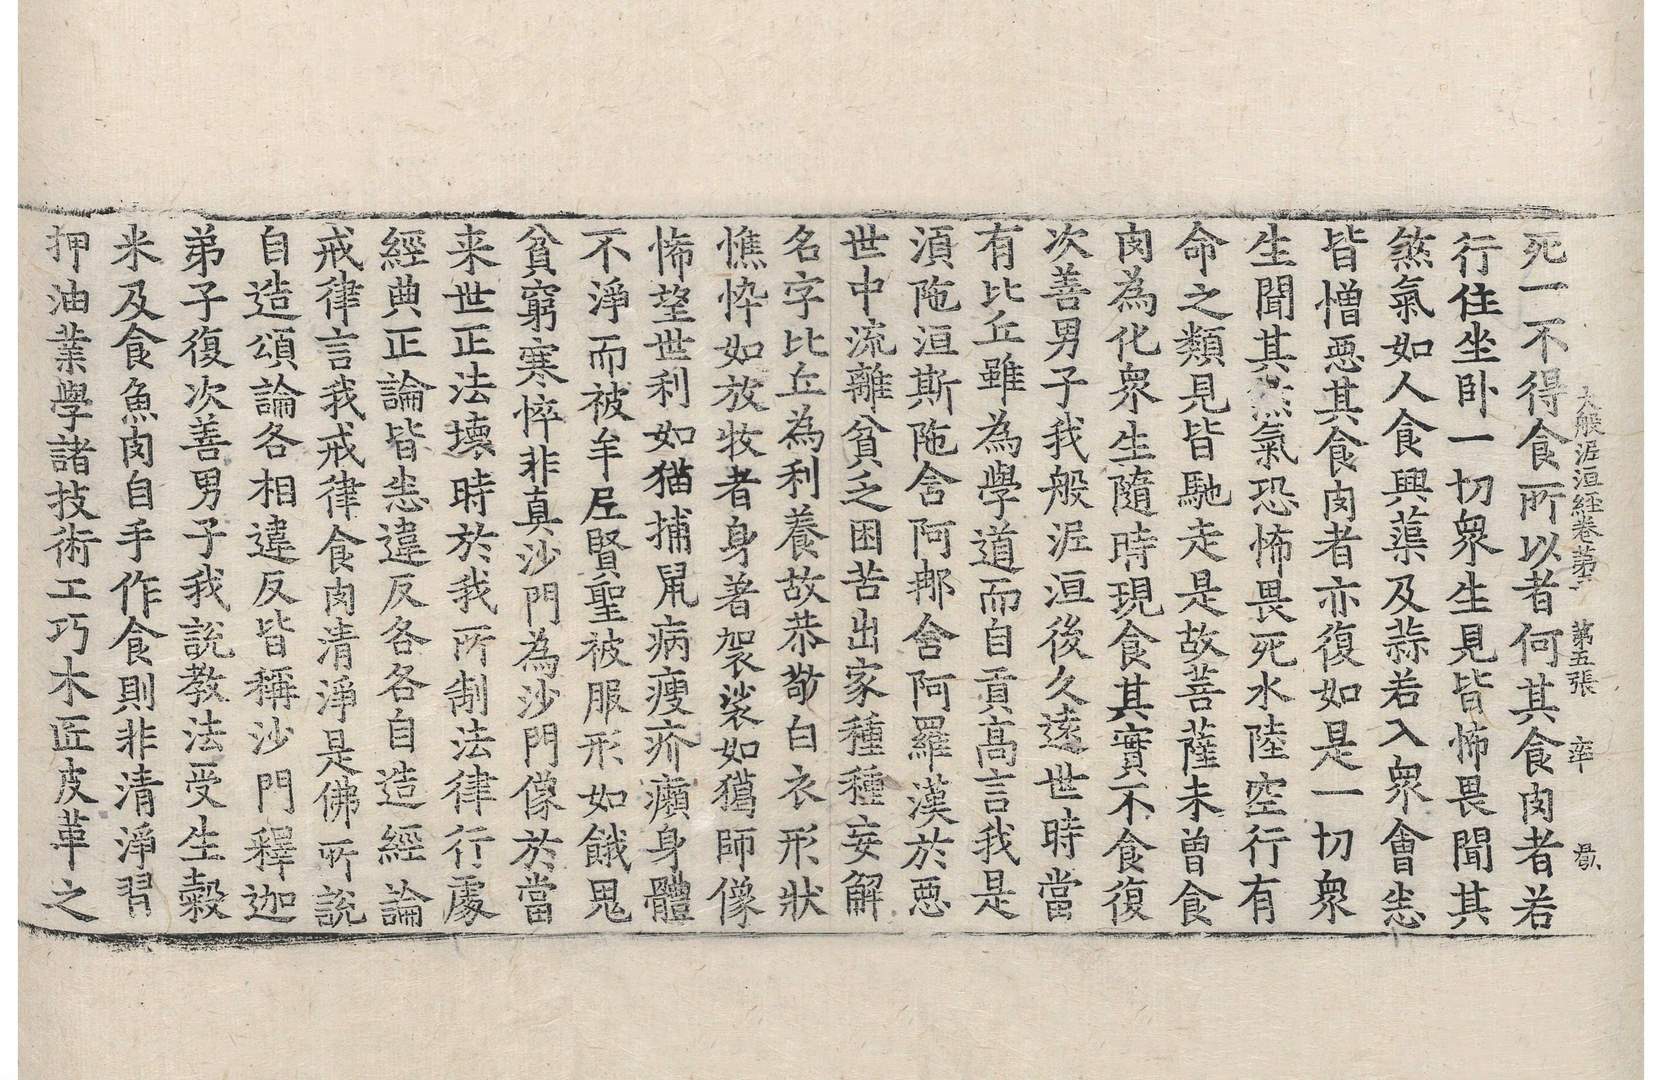 大般泥洹経卷第三 第五張 率
死一不得食所以者何其食肉者若
行住坐卧一切衆生見皆怖畏聞其
煞氣如人食興蕖及蒜若入衆會悉
皆憎惡其食肉者亦復如是一切衆
生聞其煞氣恐怖畏死水陸空行有
命之類見皆馳走是故菩薩未曾食
肉為化衆生隨時現食其實不食復
次善男子我般泥洹後久遠世時當
有比丘雖為學道而自貢高言我是
須陁洹斯陁含阿那含阿羅漢於惡
世中流離貧乏困苦出家種種妄解
名字比丘為利養故恭敬白衣形狀
憔悴如放牧者身著袈裟如獦師像
悕望世利如猫捕鼠病瘦疥癩身體
不淨而被牟尼賢聖被服形如餓鬼
貧窮寒悴非真沙門為沙門像於當
来世正法壞時於我所制法律行處
經典正論皆悉違反各各自造經論
戒律言我戒律食肉清淨是佛所說
自造頌論各相違反皆稱沙門釋迦
弟子復次善男子我說教法受生穀
米及食魚肉自手作食則非清淨習
押油業學諸技術工巧木匠皮革之